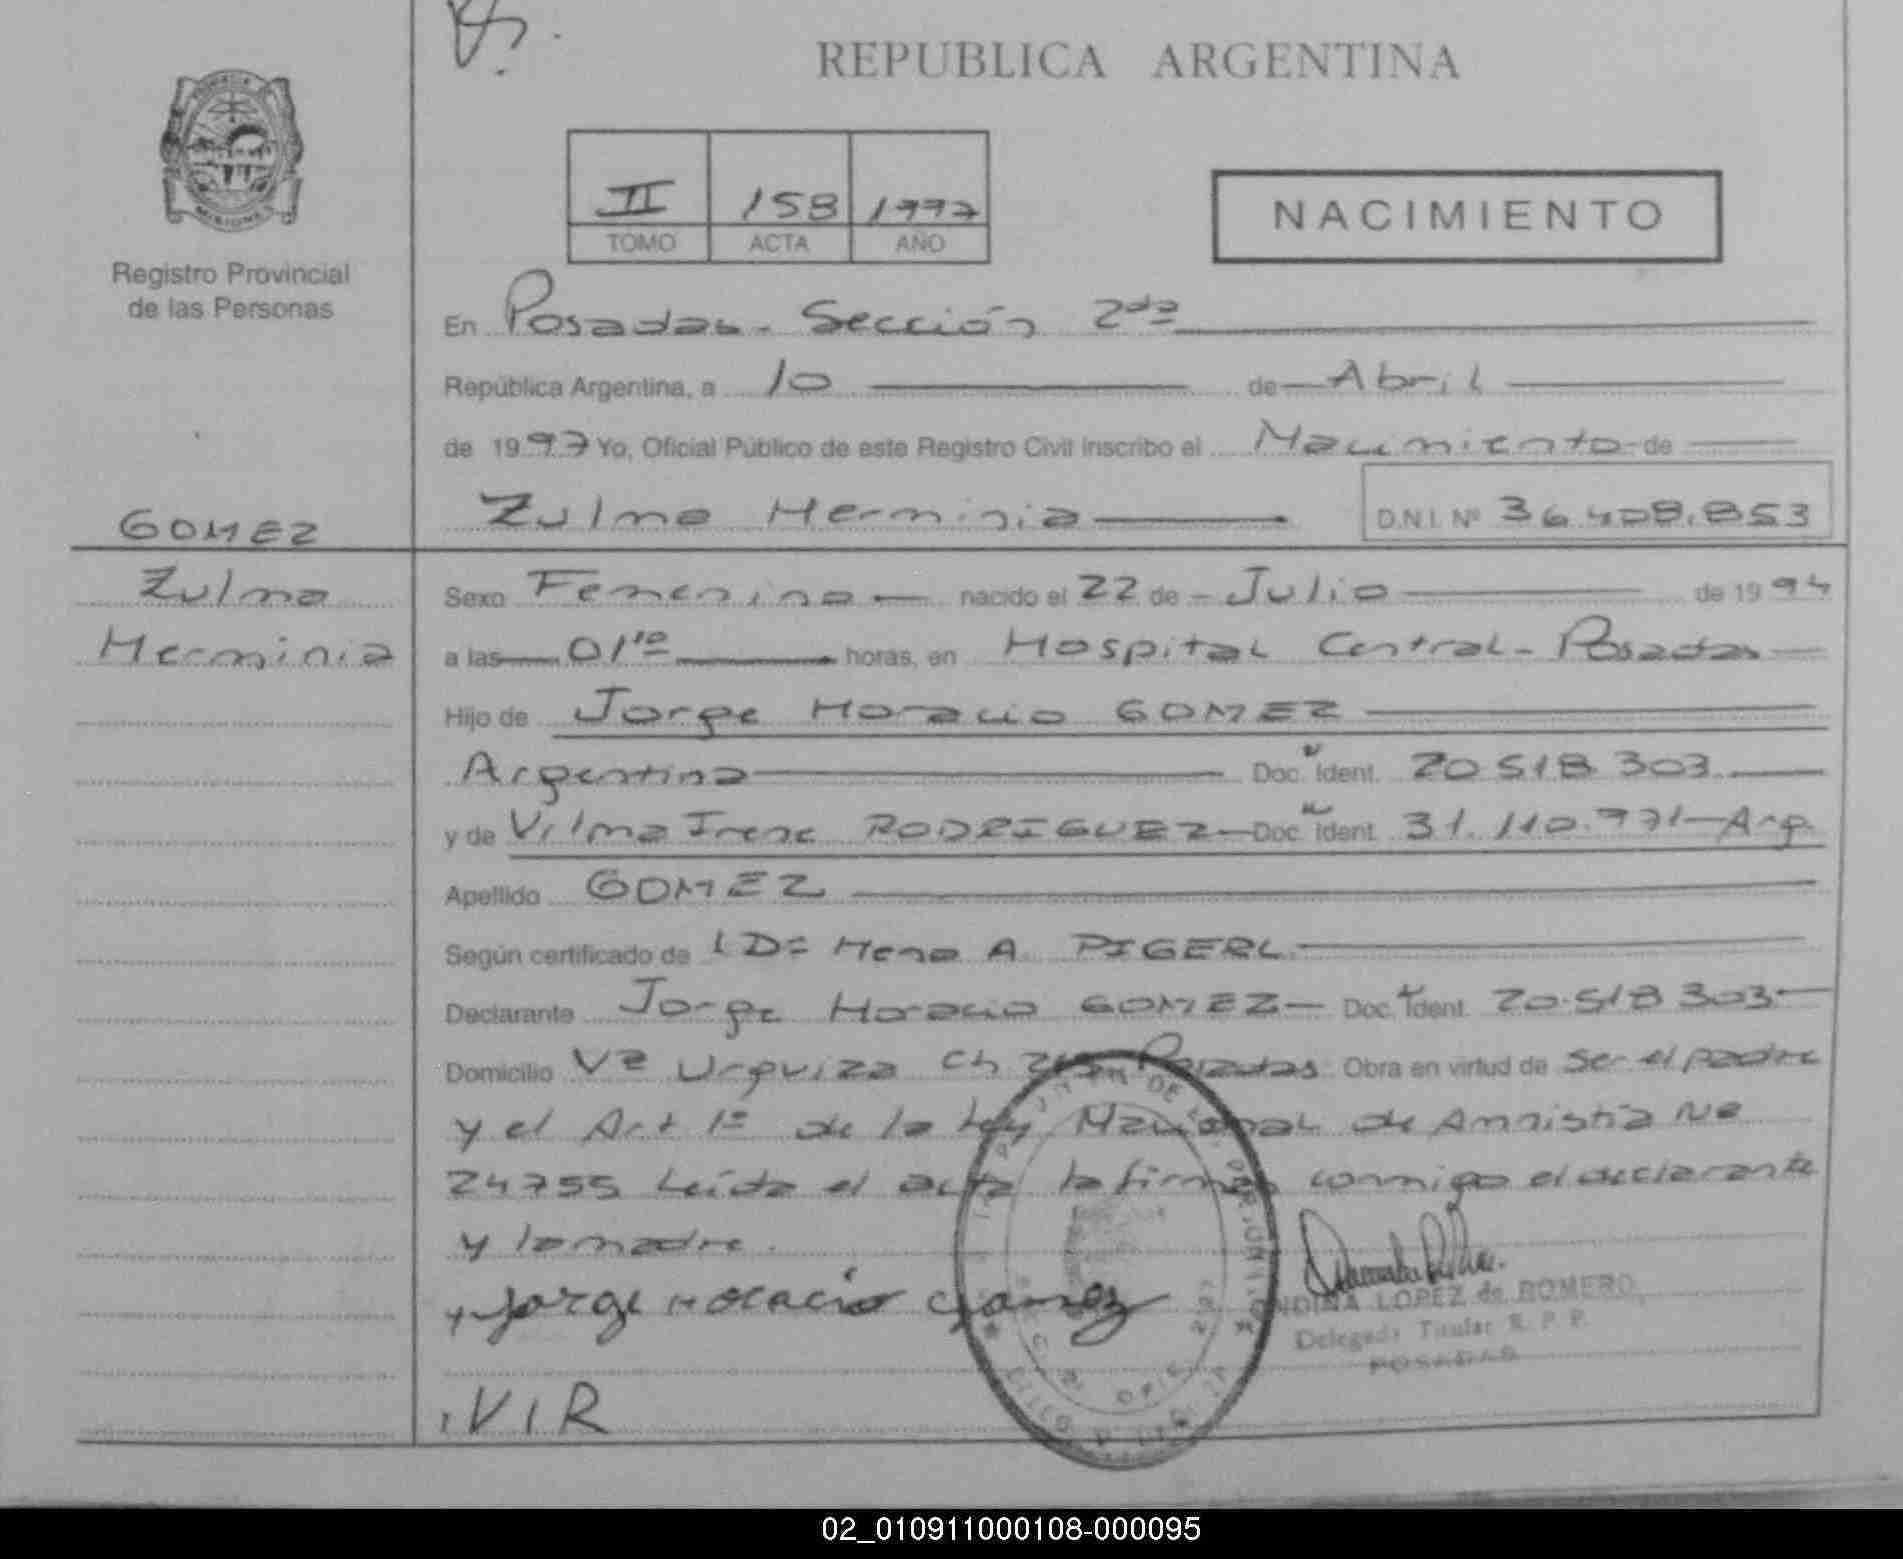 REPUBLICA ARGENTINA
PROVINCIA
MISIONES
Registro Provincial
de las Personas
II 158 1997
TOMO ACTA AÑO
NACIMIENTO
En Posadas - Sección 2da
República Argentina, a 10 de Abril
de 1997 Yo, Oficial Público de este Registro Civil Inscribo el Nacimiento de
Zulma Herminia D.N.I. Nº 36.408.853
GOMEZ
Zulma
Herminia
Sexo Femenino nacido el 22 de Julio de 1994
a las 01 10 horas, en Hospital Central - Posadas
Hijo de Jorge Horacio GOMEZ
Argentina Doc. Ident. 20 518 303
y de Vilma Irene RODRIGUEZ Doc. Ident. 31.110.771 - Arg.
Apellido GOMEZ
Según certificado de A. PIGERL
Declarante Jorge Horacio GOMEZ Doc. Ident. 20.518 303
Domicilio Vª Urquiza Ch Posadas Obra en virtud de ser el padre
y el Art 1º de la Ley Nacional de Amnistía Nº
24755 Leída el acta la firman conmigo el declarante
y la madre.
Jorge Horacio Gomez
LOPEZ de ROMERO
Delegada Titular R. P. P.
POSADAS
V I R
02_010911000108-000095